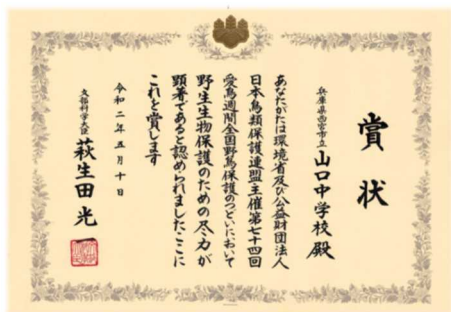 賞状
兵庫県西宮市立 山口中学校 殿
あなたがたは環境省及び公益財団法人
日本鳥類保護連盟主催第七十四回
愛鳥週間全国野鳥保護のつどいにおいて
野生生物保護のための尽力が
顕著であると認められましたここに
これを賞します
令和二年五月十日
文部科学大臣 萩生田光